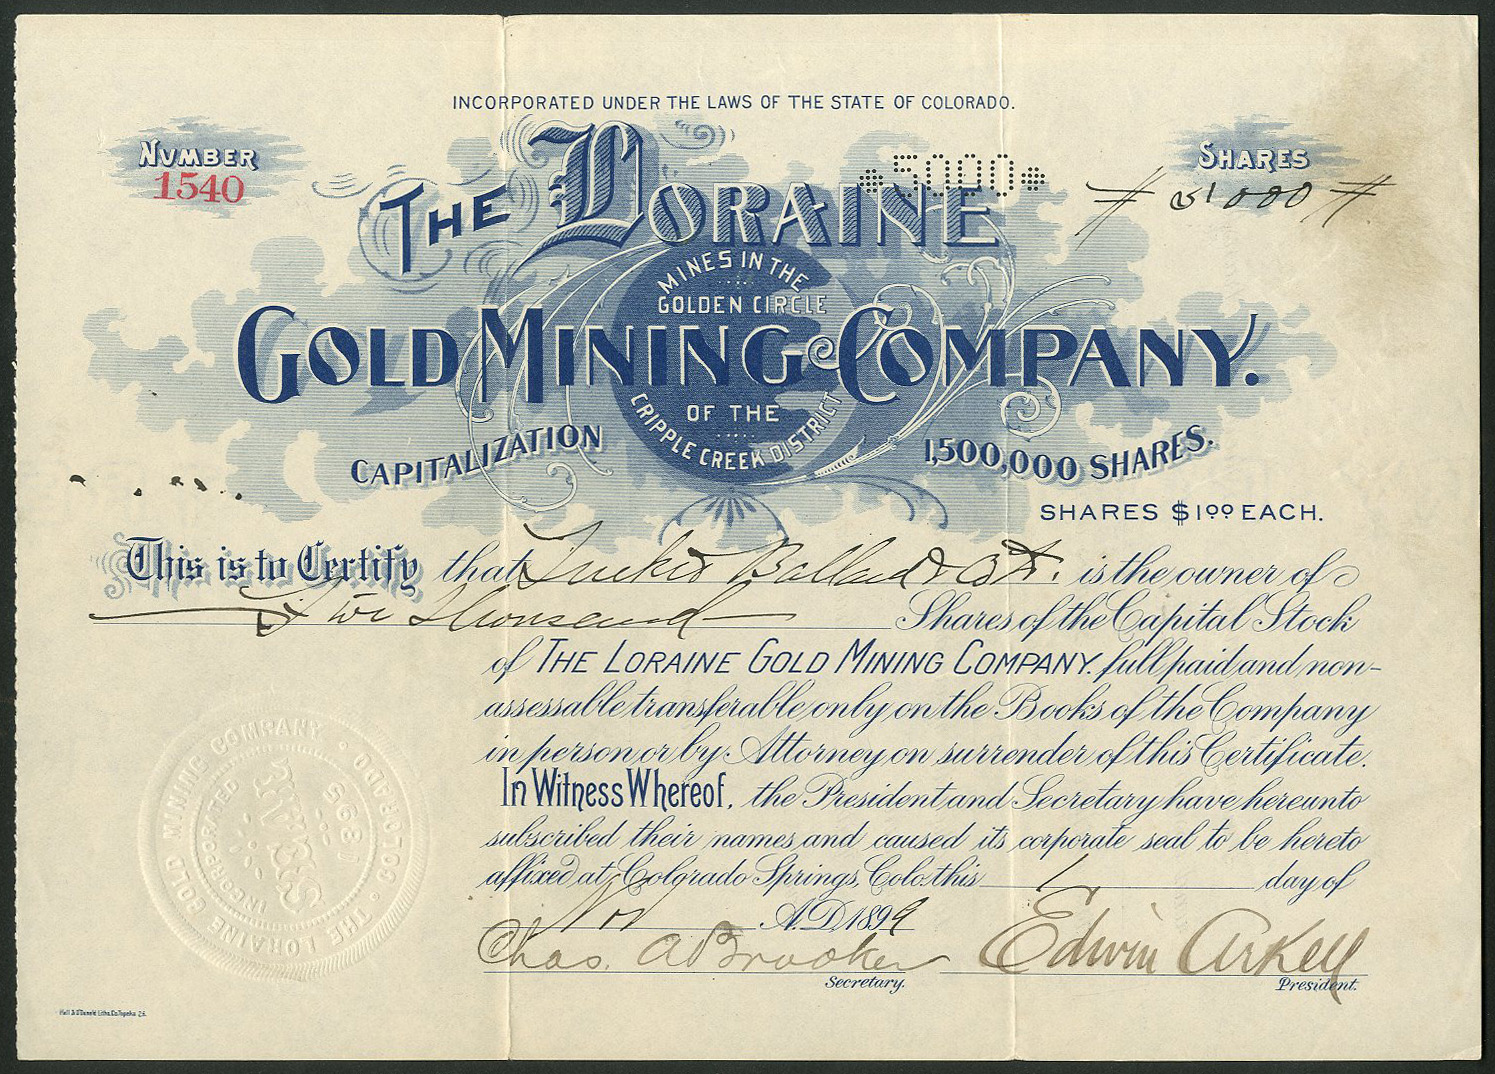 INCORPORATED UNDER THE LAWS OF THE STATE OF COLORADO.
NUMBER
1540
SHARES
# 5,000 #
*5000*
THE LORAINE
MINES IN THE
GOLDEN CIRCLE
GOLD MINING COMPANY.
OF THE
CRIPPLE CREEK DISTRICT
CAPITALIZATION 1,500,000 SHARES.
SHARES $1.00 EACH.
This is to Certify that Ballard & is the owner of
Five Thousand Shares of the Capital Stock
of THE LORAINE GOLD MINING COMPANY. full paid and non-
assessable transferable only on the Books of the Company
in person or by Attorney on surrender of this Certificate.
In Witness Whereof, the President and Secretary have hereunto
subscribed their names and caused its corporate seal to be hereto
affixed at Colorado Springs, Colo. this 1 day of
Nov A.D. 1899
Chas. A Brooker Edwin Arkell
Secretary. President.
THE LORAINE GOLD MINING COMPANY · COLORADO ·
INCORPORATED 1895
SEAL
Hall & O'Donald Litho. Co. Topeka